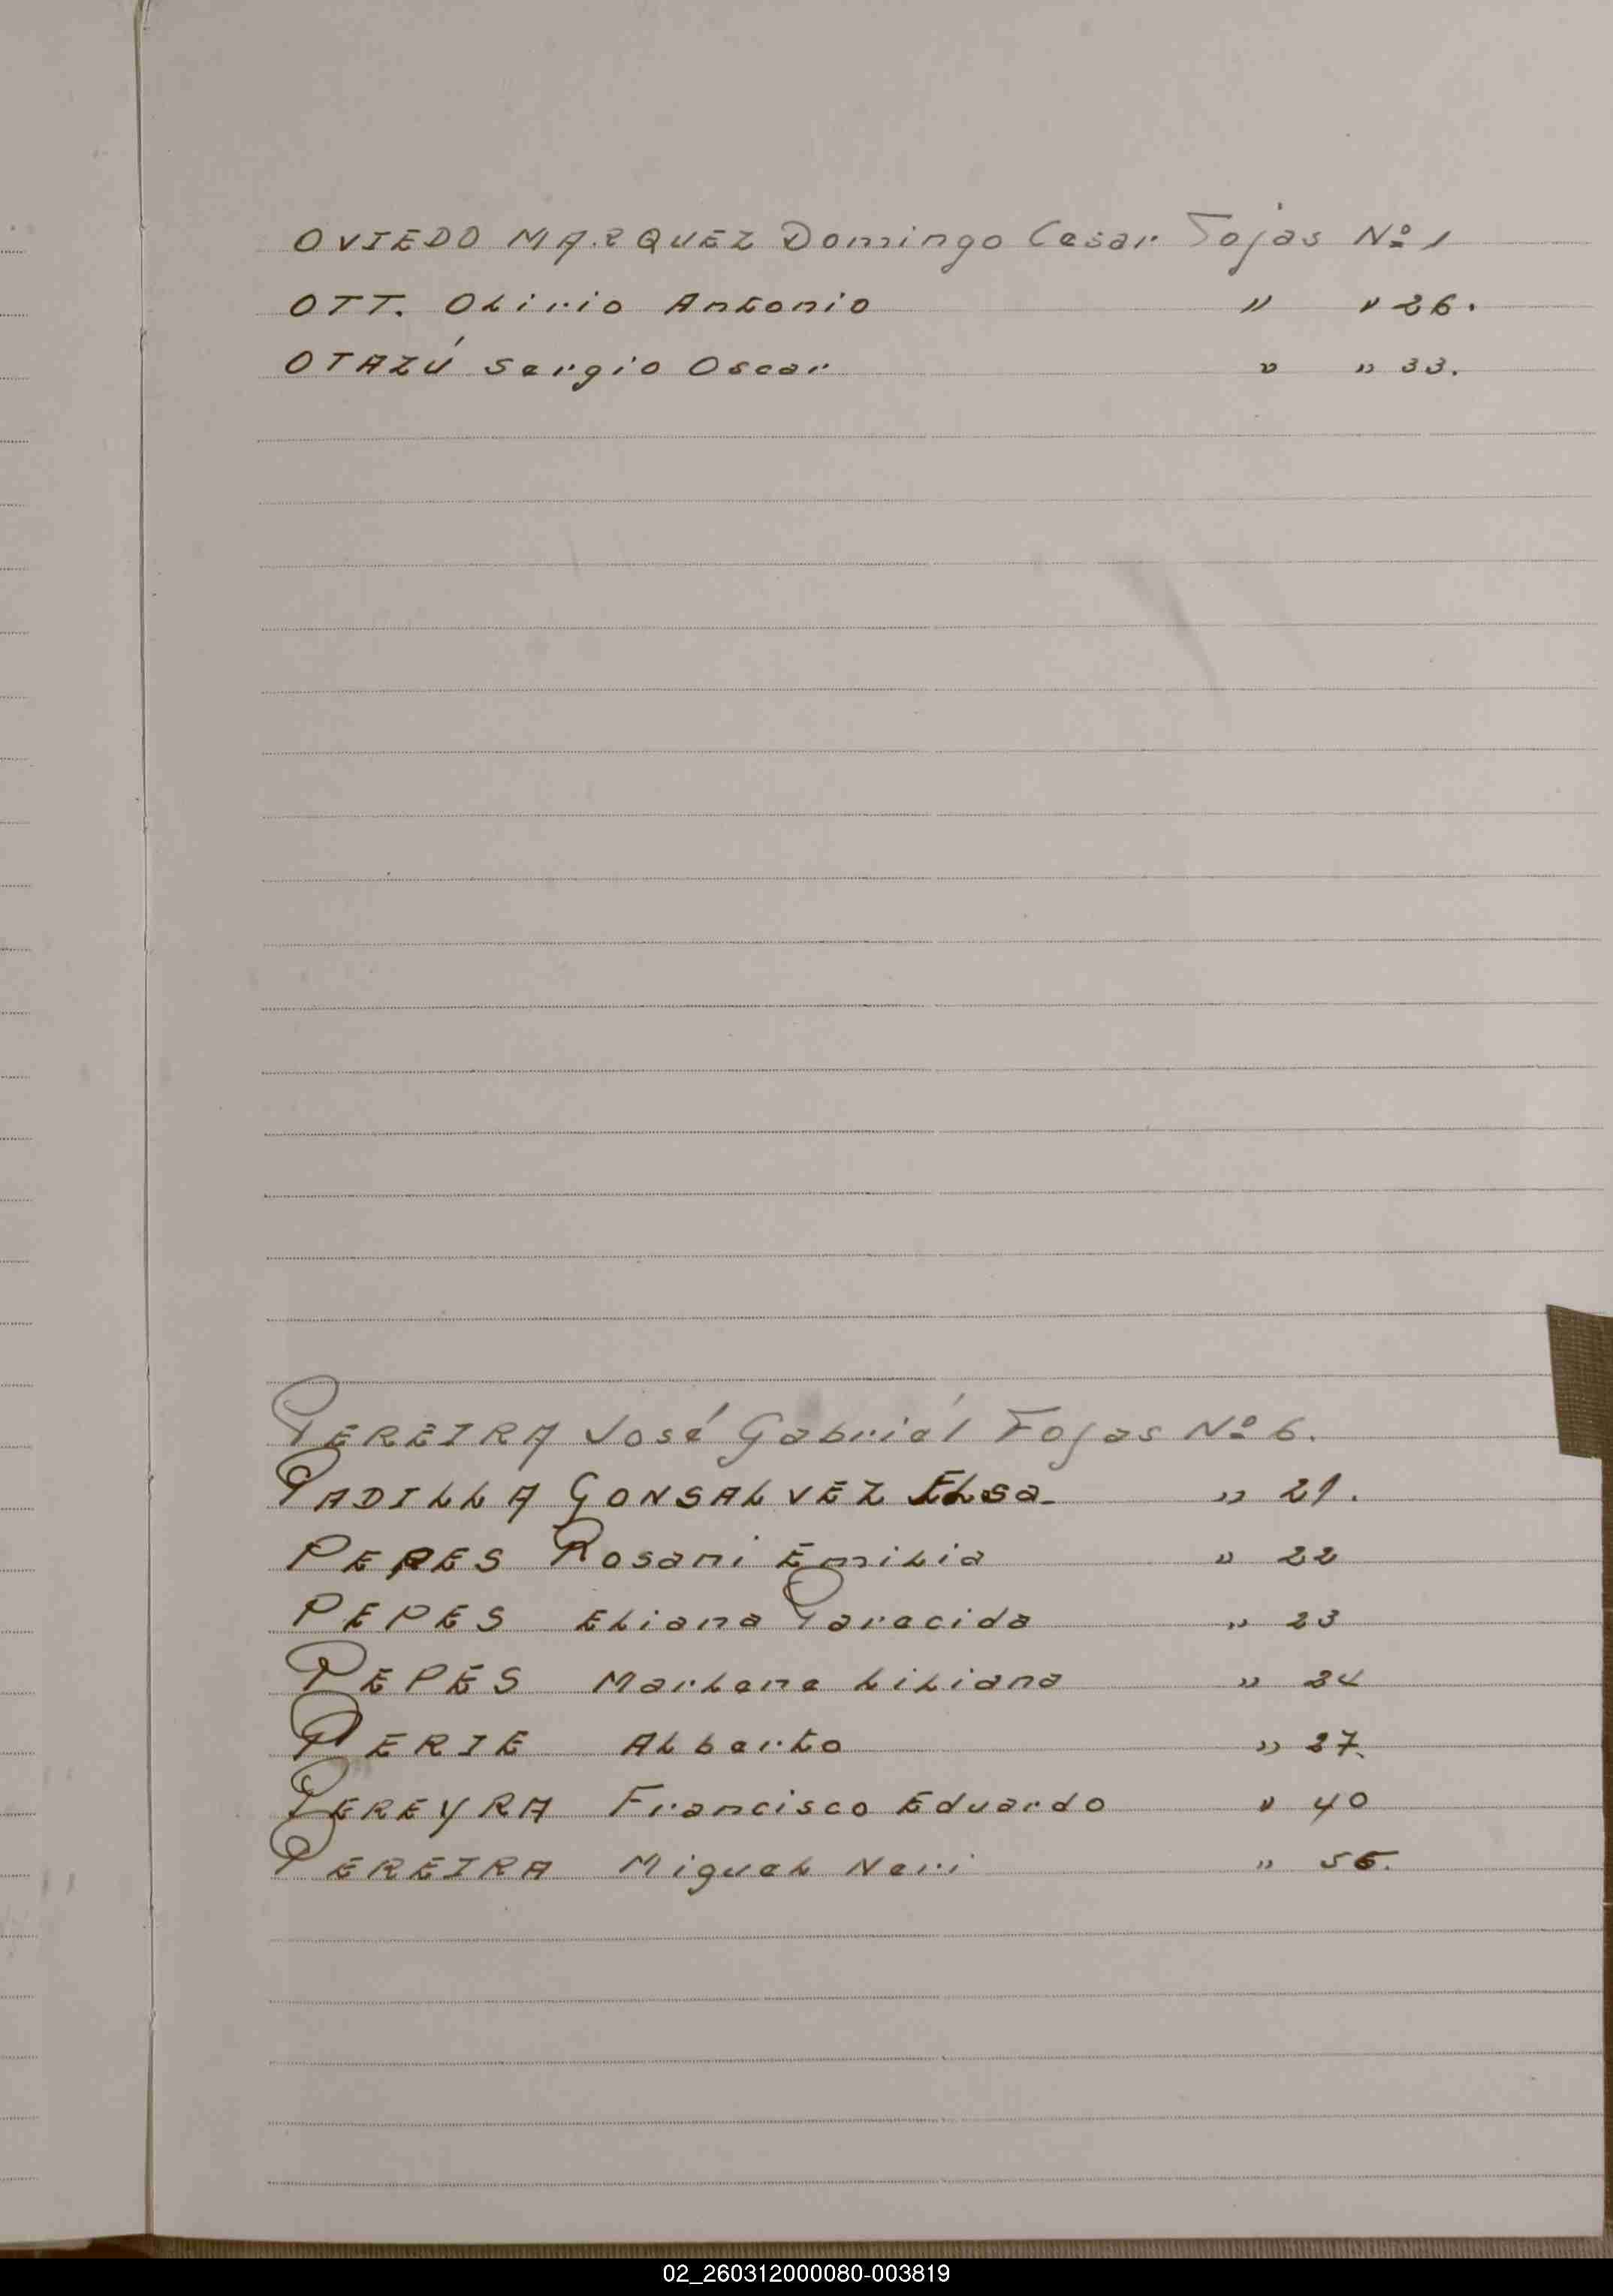 OVIEDO MARQUEZ Domingo Cesar Fojas Nº 1
OTT. Olirio Antonio " " 26.
OTAZÚ Sergio Oscar " " 33.
PEREIRA José Gabriél Fojas Nº 6.
PADILLA GONSALVEZ Elsa " 21.
PEPES Rosani Emilia " 22
PEPES Eliana Parecida " 23
PEPES Marlene Liliana " 24
PERIE Alberto " 27.
PEREYRA Francisco Eduardo " 40
PEREIRA Miguel Neri " 56.
02_260312000080-003819